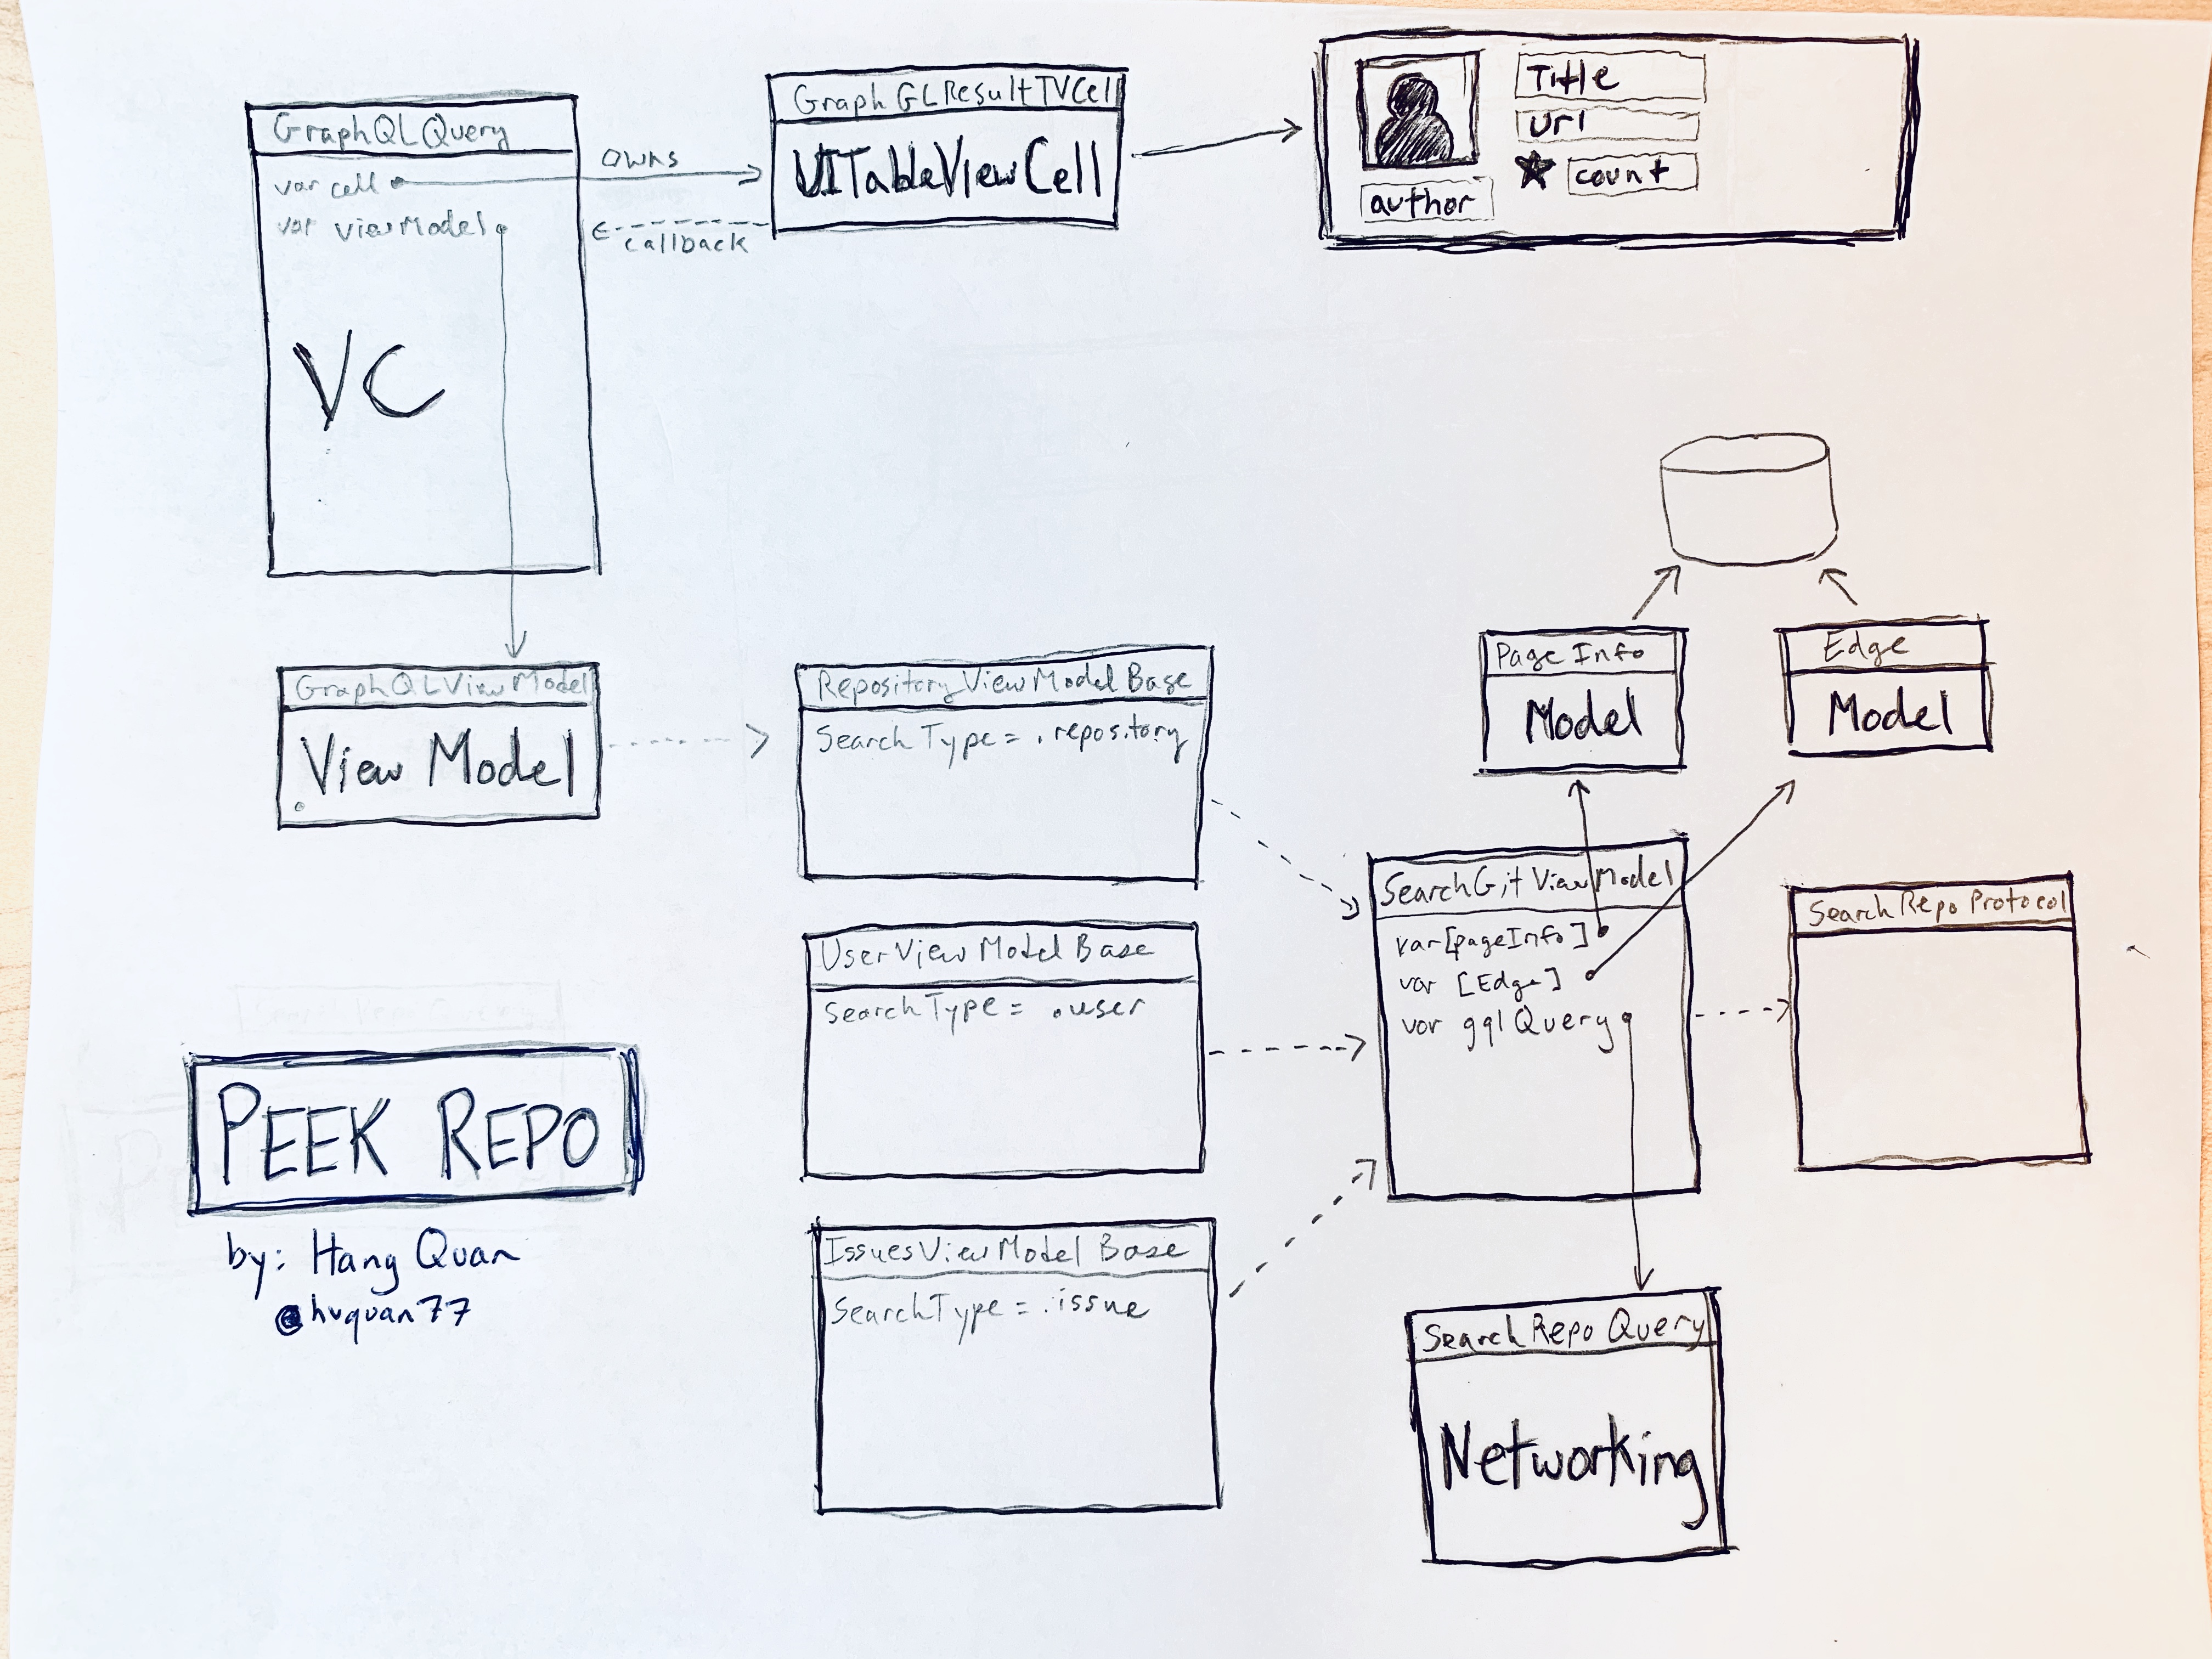 GraphQLQuery
var cell
var viewModel
VC
owns
callback
GraphGLResultTVCell
UITableViewCell
Title
url
count
author
GraphQLViewModel
View Model
RepositoryViewModelBase
SearchType = .repository
UserViewModelBase
SearchType = .user
IssuesViewModelBase
SearchType = .issue
PageInfo
Model
Edge
Model
SearchGitViewModel
var [pageInfo]
var [Edge]
var gqlQuery
SearchRepoProtocol
SearchRepoQuery
Networking
PEEK REPO
by: Hang Quan
@hvquan77